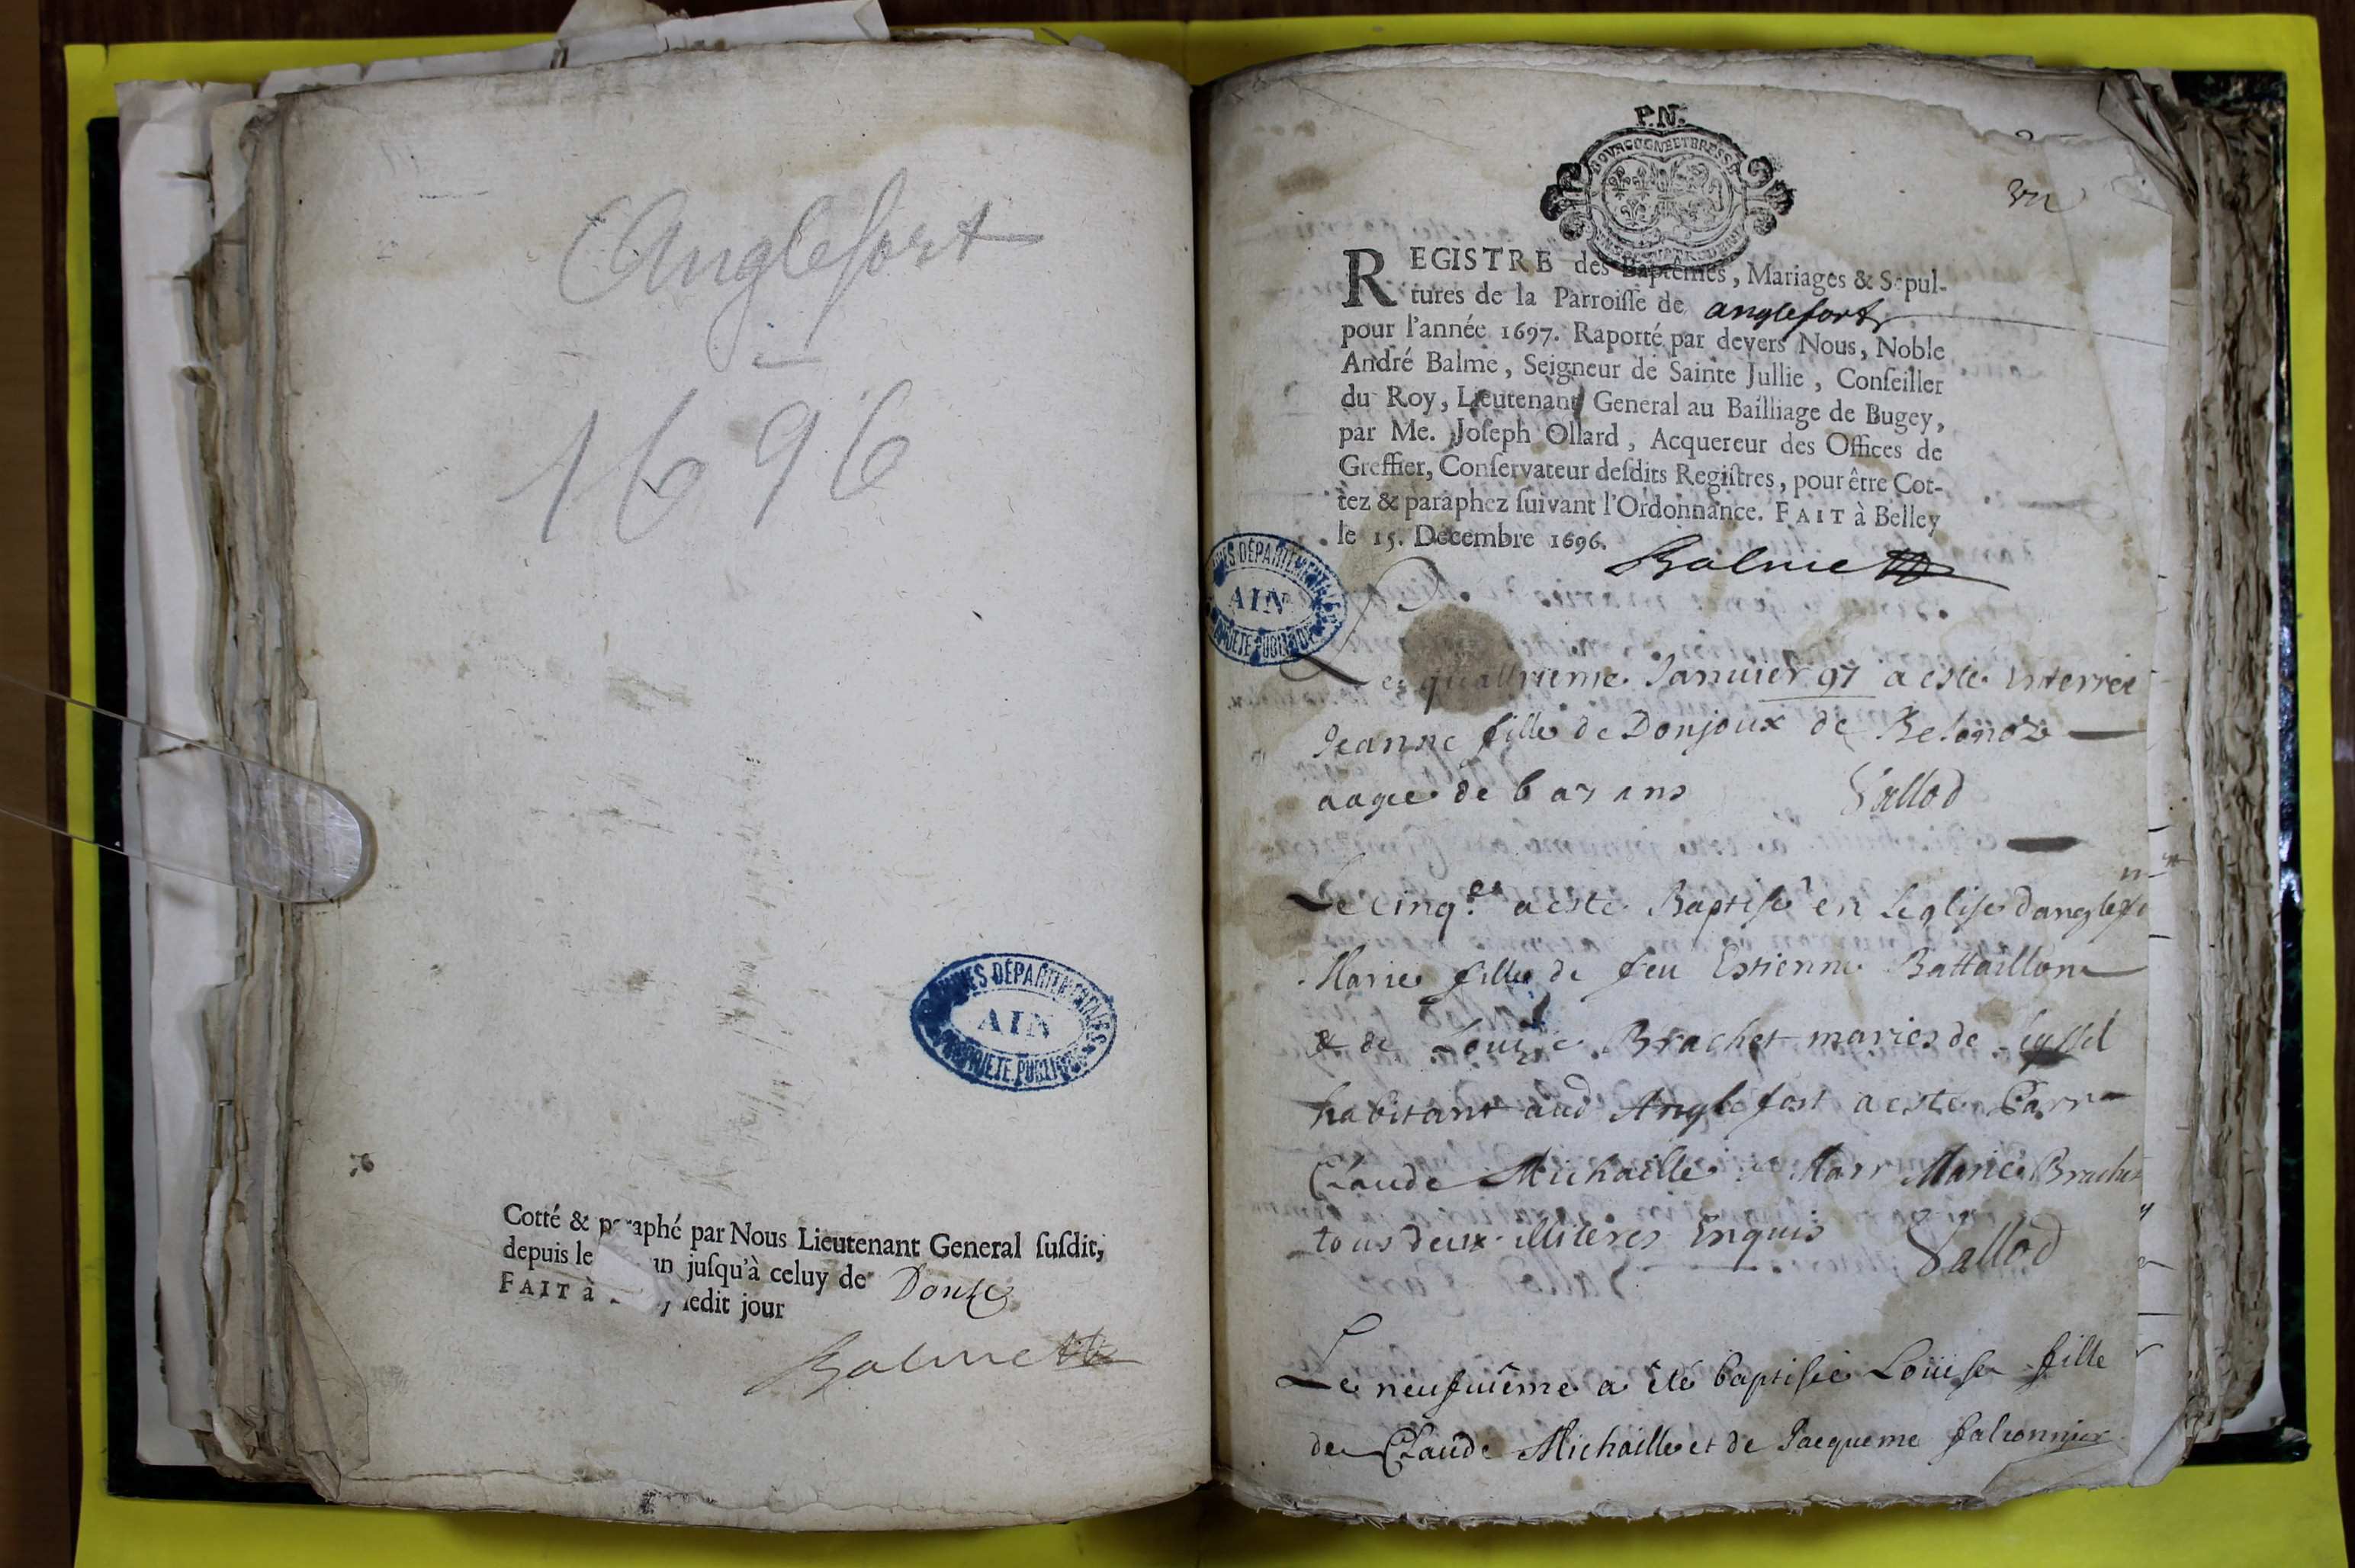 Anglefort
1696
ARCHIVES DÉPARTEMENTALES
AIN
PROPRIÉTÉ PUBLIQUE
Cotté & paraphé par Nous Lieutenant General ſuſdit,
depuis le un juſqu'à celuy de Douze
FAIT à ledit jour
Balme
P.N.
BOURGOGNE ET BRESSE
un
REGISTRE des Baptêmes, Mariages & Sepul-
tures de la Parroiſſe de anglefort
pour l'année 1697. Raporté par devers Nous, Noble
André Balme, Seigneur de Sainte Jullie, Conſeiller
du Roy, Lieutenant General au Bailliage de Bugey,
par Me. Joſeph Ollard, Acquereur des Offices de
Greffier, Conſervateur deſdits Regiſtres, pour être Cot-
tez & paraphez ſuivant l'Ordonnance. FAIT à Belley
le 15. Decembre 1696.
Balme
ARCHIVES DÉPARTEMENTALES
AIN
PROPRIÉTÉ PUBLIQUE
Le quattrieme Januier 97 a este enterrée
Jeanne fille de Donjoux de
aagée de 6 a 7 ans Vallod
Le cinq.e a este Baptisé en Leglise
Marie fille de feu Estienne Battaillon
& de Louise Brachet maries de Seyssel
habitant aud Anglefort a este Parr
Claude Michaille & Marr Marie Brachet
tous deux illiteres enquis Vallod
Le neufuiême a été baptisée Loüise fille
de Claude Michaille et de Jacqueme falconnier